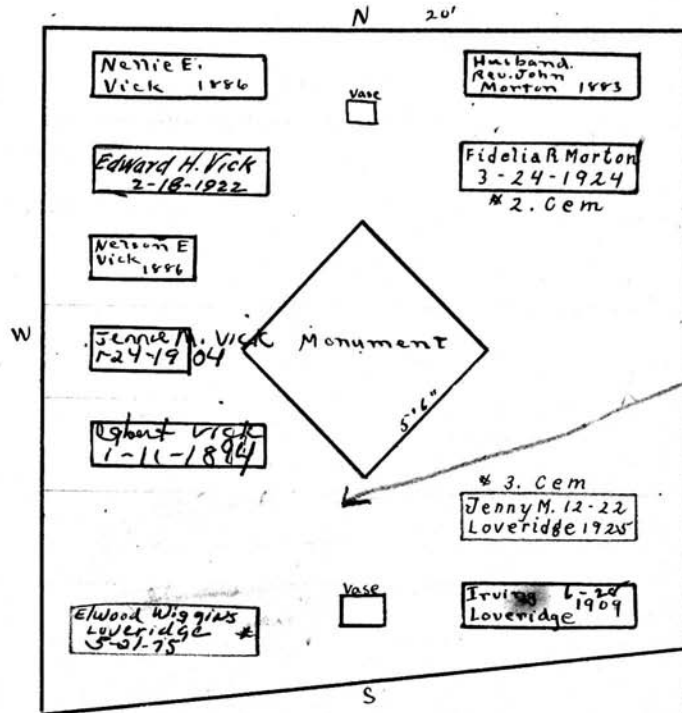 N 20'
Nellie E.
Vick 1886
Vase
Husband.
Rev. John
Morton 1883
Edward H. Vick
2-18-1922
Fidelia R Morton
3-24-1924
# 2. Cem
Nelson E
Vick 1886
W
Jennie M. Vick
1-24-1904
Monument
5'6"
Egbert Vick
1-11-1894
# 3. Cem
Jenny M. 12-22
Loveridge 1925
Vase
Irving 6-28
Loveridge 1909
Elwood Wiggins
Loveridge *
5-21-75
S